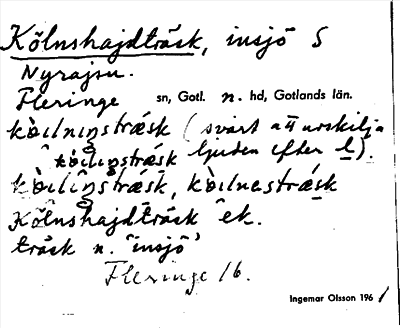 Kölnshajdträsk, insjö S
Nyrajsu.
Fleringe sn, Gotl. n. hd, Gotlands län.
kòilniŋstræsk (svårt att urskilja
kòiliŋstræsk ljuden efter l).
kòiliŋstræsk, kòilnestræsk
Kölnshajdträsk ek.
träsk n. 'insjö'
Fleringe 16.
Ingemar Olsson 1961